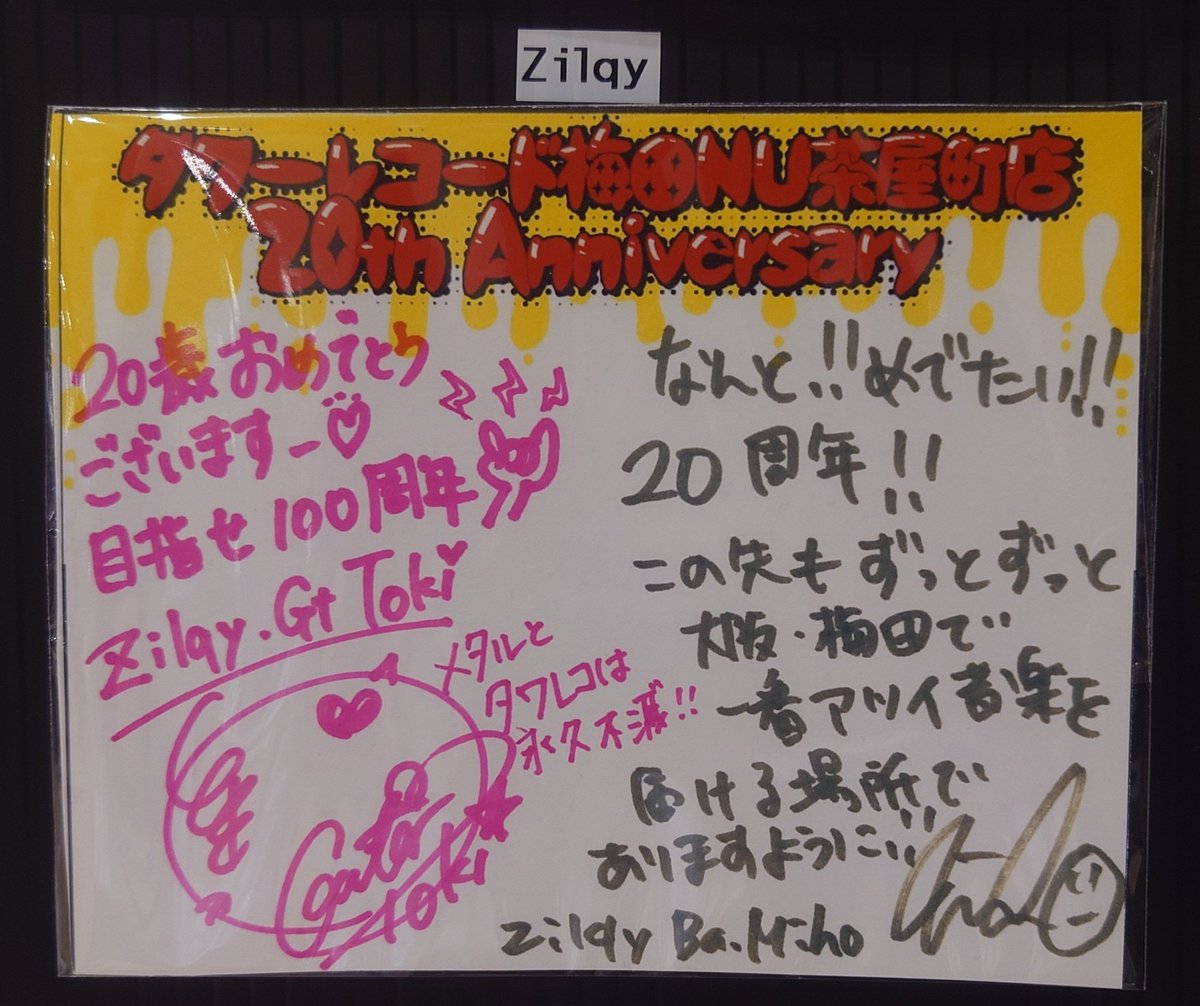 Zilqy
タワーレコード梅田NU茶屋町店
20th Anniversary
20歳おめでとう
ございますー♡
目指せ100周年
Zilqy.Gt Toki
メタルと
タワレコは
永久不滅!!
Guitar
Toki
なんと!!めでたい!!
20周年!!
この先もずっとずっと
大阪・梅田で
一番アツイ音楽を
届ける場所で
ありますように!!
Zilqy Ba.Miho